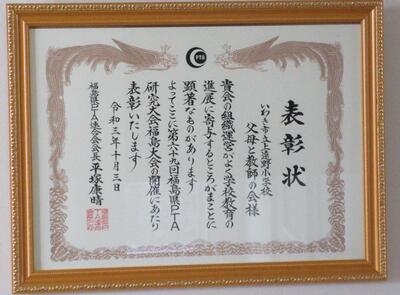 PTA
表彰状
いわき市立上遠野小学校
父母と教師の会様
貴会の組織運営がよく学校教育の
進展に寄与するところがまことに
顕著なものがあります
よってここに第六九回福島県PTA
研究大会福島大会の開催にあたり
表彰いたします
令和三年十月三日
福島県PTA連合会会長 平塚康晴